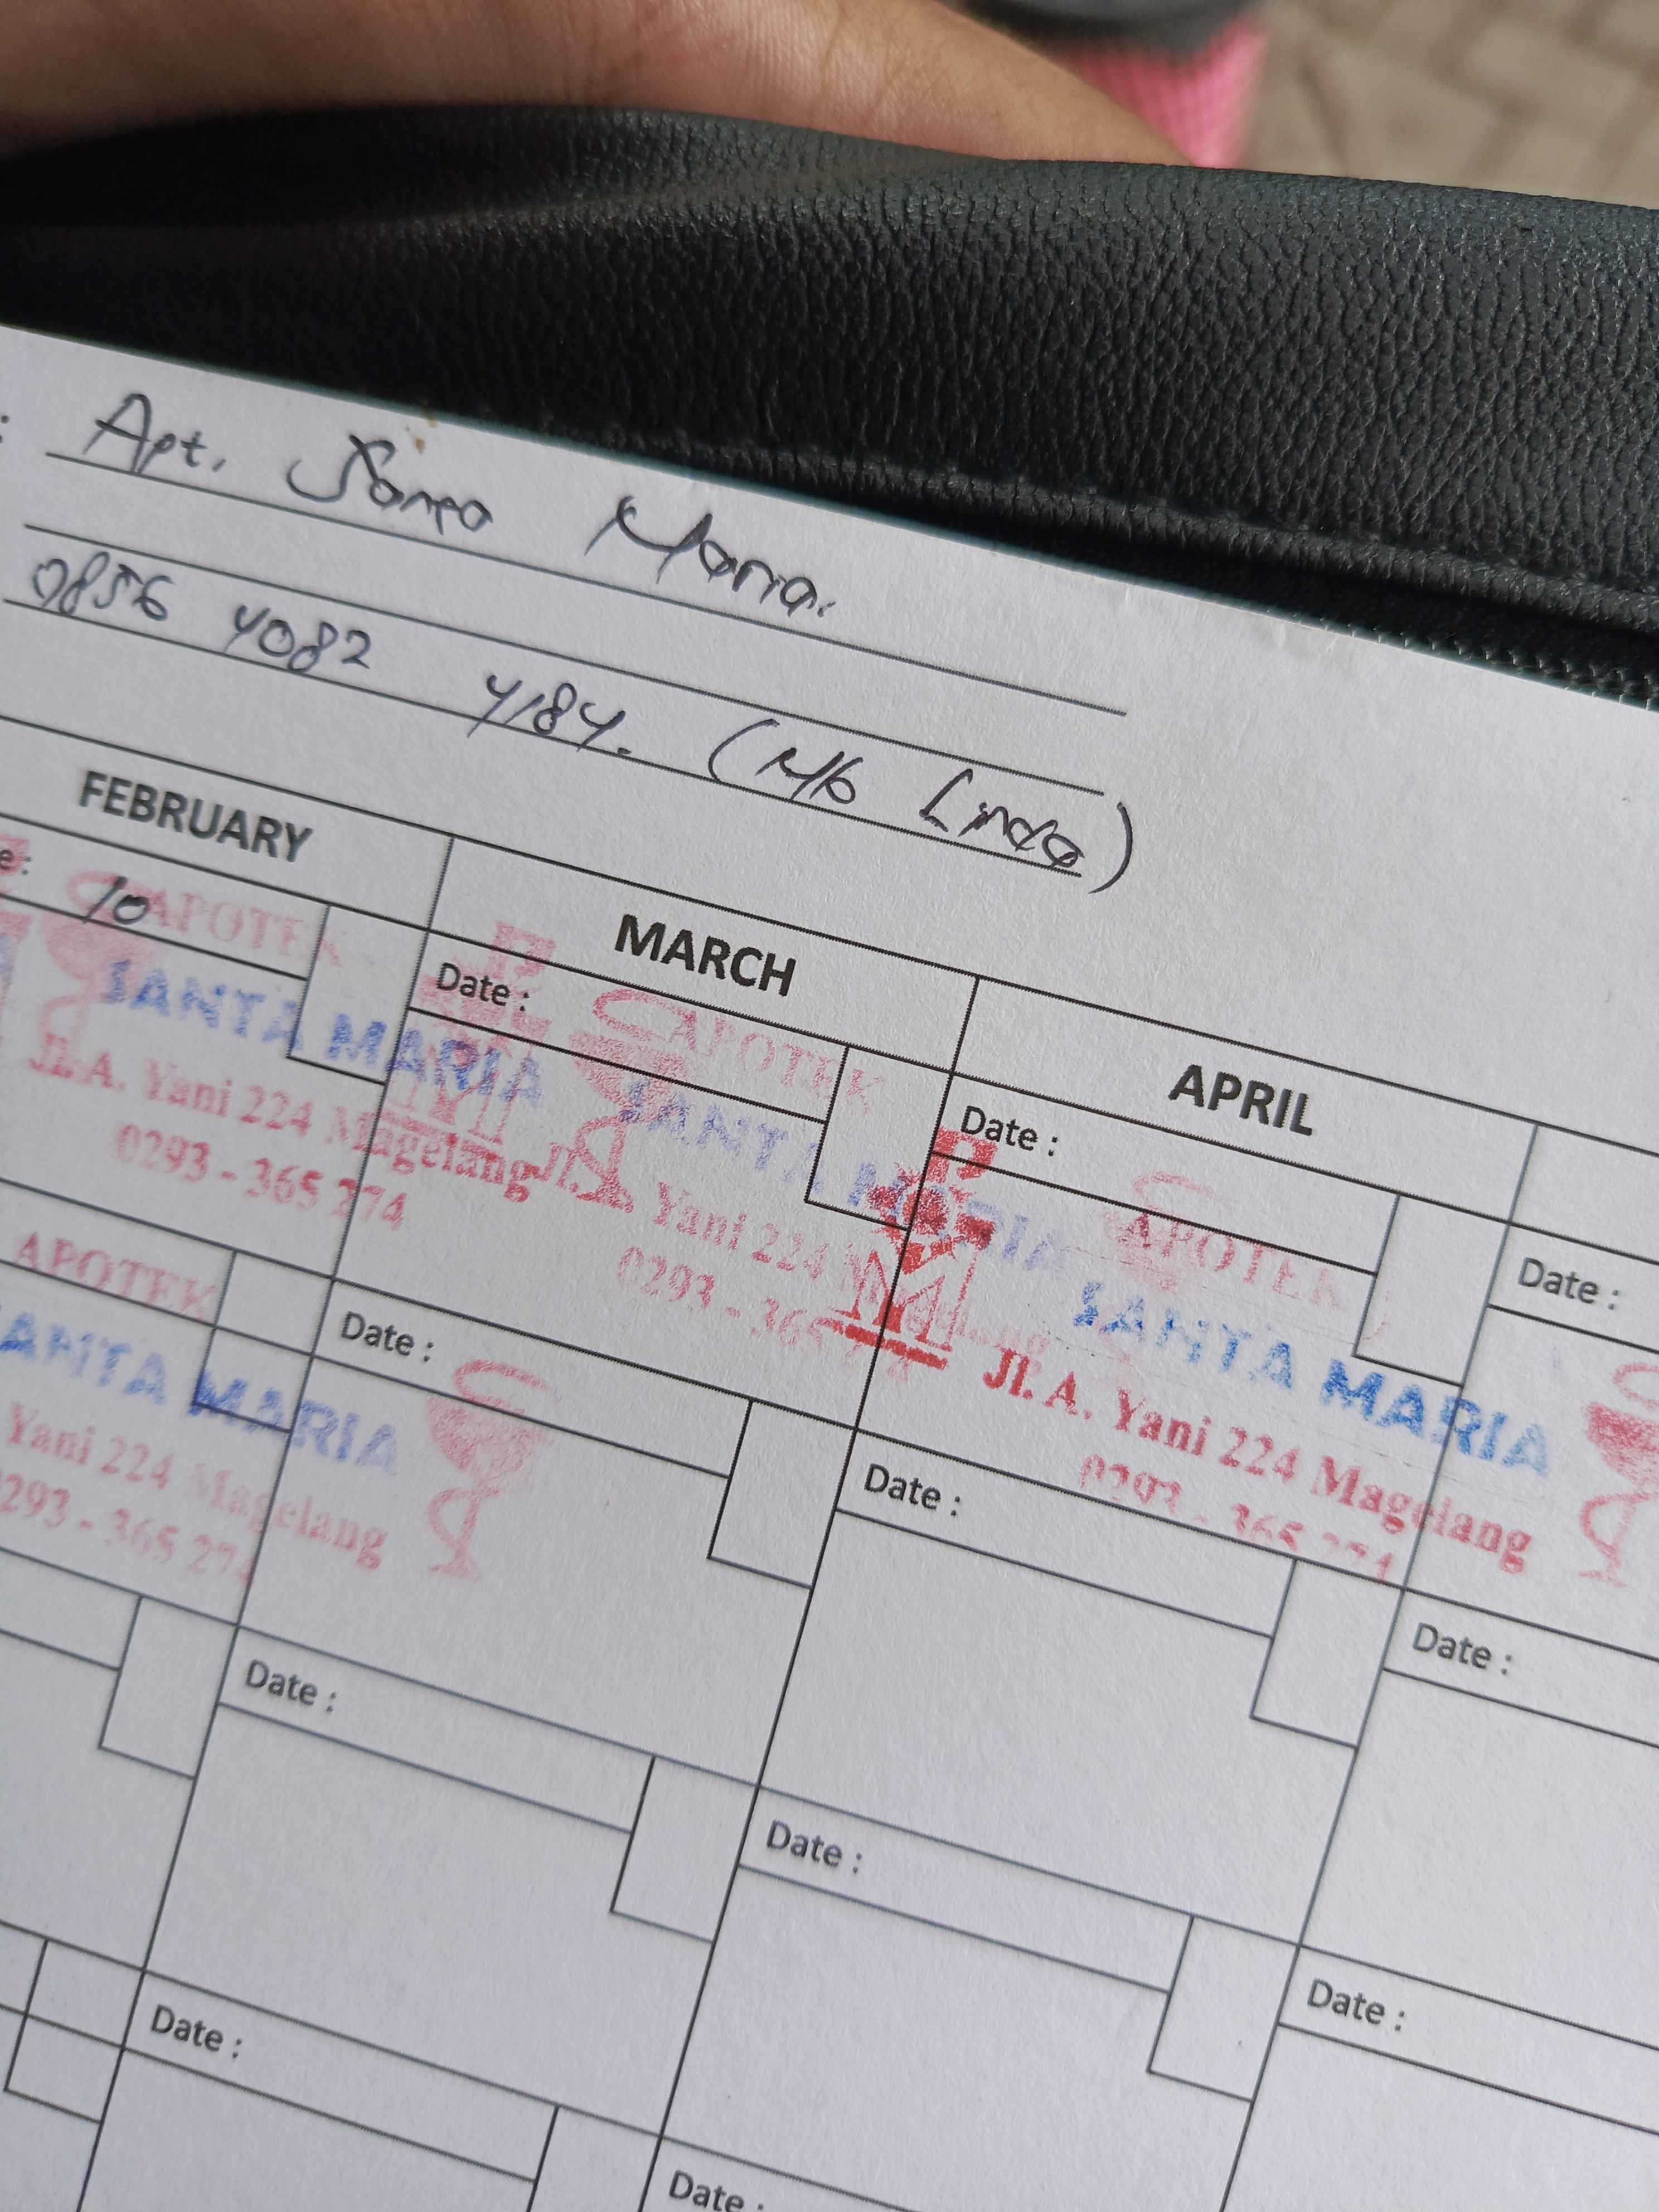 : Apt. Santa Maria.
0856 4082 4184. (Mb Linda)
FEBRUARY
MARCH
APRIL
e: 10
Date :
Date :
Date :
APOTEK
SANTA MARIA
Jl. A. Yani 224 Magelang
0293 - 365 274
APOTEK
SANTA MARIA
Jl. A. Yani 224
0293 - 365
APOTEK
SANTA MARIA
Jl. A. Yani 224 Magelang
0293 - 365 274
APOTEK
ANTA MARIA
Yani 224 Magelang
0293 - 365 274
Date :
Date :
Date :
Date :
Date :
Date :
Date :
Date :